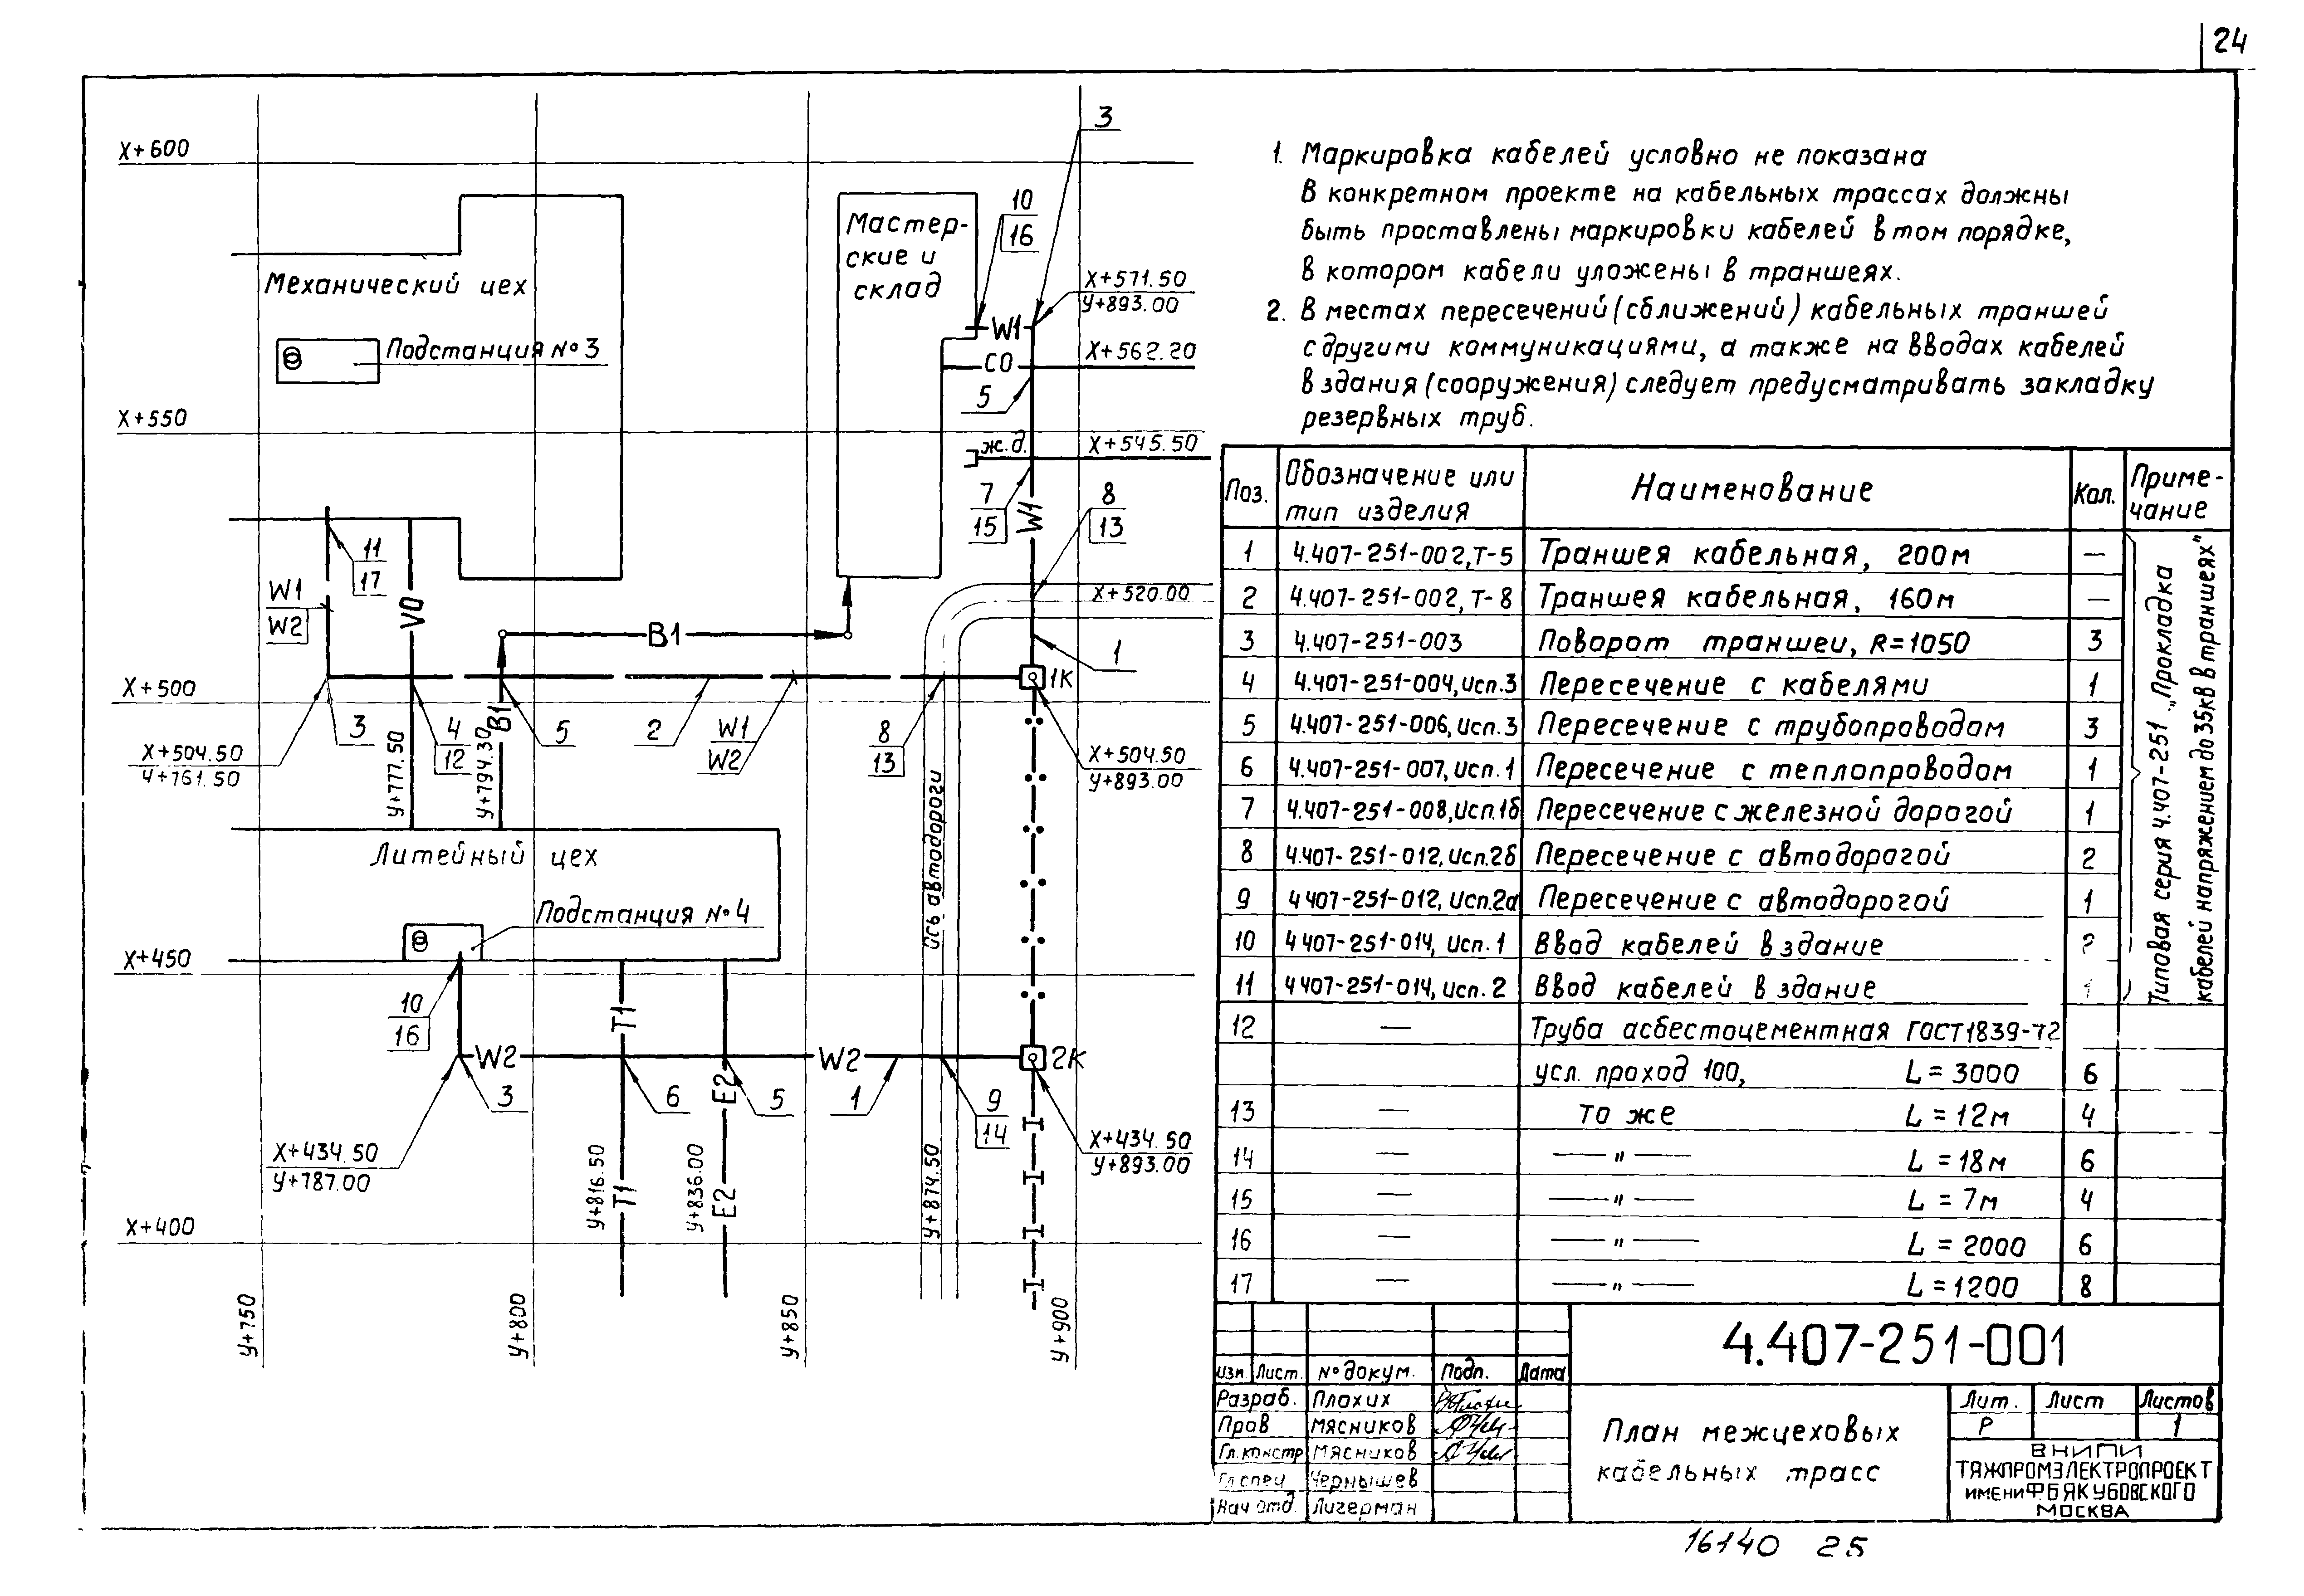 24
X+600
X+550
X+500
X+450
X+400
У+750
У+800
У+850
У+900
Механический цех
Подстанция №3
Мастер-
ские и
склад
10
16
3
X+571.50
У+893.00
W1
CO
X+562.20
5
ж.д.
X+545.50
7
15
W1
8
13
X+520.00
11
17
W1
W2
VO
B1
1
1К
3
X+504.50
У+761.50
4
12
B1
5
2
W1
W2
8
13
X+504.50
У+893.00
У+777.50
У+794.30
Литейный цех
Подстанция №4
ось автодороги
10
16
T1
W2
W2
2К
3
6
E2
5
1
9
14
X+434.50
У+787.00
X+434.50
У+893.00
У+816.50
T1
У+836.00
E2
У+874.50
1. Маркировка кабелей условно не показана
В конкретном проекте на кабельных трассах должны
быть проставлены маркировки кабелей в том порядке,
в котором кабели уложены в траншеях.
2. В местах пересечений (сближений) кабельных траншей
с другими коммуникациями, а также на вводах кабелей
в здания (сооружения) следует предусматривать закладку
резервных труб.
Поз. Обозначение или тип изделия Наименование Кол. Примечание
1 4.407-251-002, Т-5 Траншея кабельная, 200м —
2 4.407-251-002, Т-8 Траншея кабельная, 160м —
3 4.407-251-003 Поворот траншеи, R=1050 3
4 4.407-251-004, Исп.3 Пересечение с кабелями 1
5 4.407-251-006, Исп.3 Пересечение с трубопроводом 3
6 4.407-251-007, Исп.1 Пересечение с теплопроводом 1
7 4.407-251-008, Исп.1б Пересечение с железной дорогой 1
8 4.407-251-012, Исп.2б Пересечение с автодорогой 2
9 4 407-251-012, Исп.2а Пересечение с автодорогой 1
10 4 407-251-014, Исп. 1 Ввод кабелей в здание 2
11 4 407-251-014, исп. 2 Ввод кабелей в здание 1
12 — Труба асбестоцементная ГОСТ1839-72
усл. проход 100, L = 3000 6
13 — то же L = 12м 4
14 — —"— L = 18м 6
15 — —"— L = 7м 4
16 — —"— L = 2000 6
17 — —"— L = 1200 8
Типовая серия 4.407-251 „Прокладка
кабелей напряжением до 35кВ в траншеях"
4.407-251-001
Изм Лист. № докум. Подп. Дата
Разраб. Плохих
Пров Мясников
Гл.констр Мясников
Гл спец Чернышев
Нач отд. Лигерман
План межцеховых
кабельных трасс
Лит. Лист Листов
Р 1
ВНИПИ
ТЯЖПРОМЭЛЕКТРОПРОЕКТ
ИМЕНИ Ф.Б ЯКУБОВСКОГО
МОСКВА
16140 25